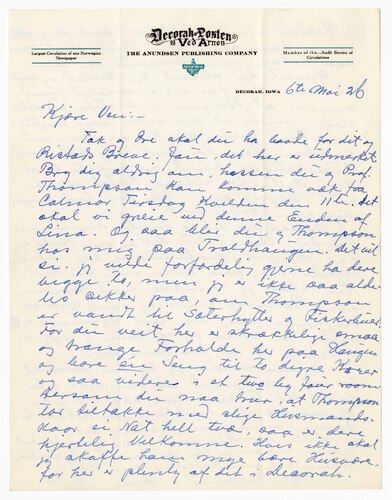 Decorah-Posten
Ved Arnen
THE ANUNDSEN PUBLISHING COMPANY
Largest Circulation of any Norwegian
Newspaper
Member of the Audit Bureau of
Circulations
DECORAH, IOWA 6te Mai 26
Kjære Ven:-
Tak og Ære skal du ha baade for dit og
Ristads Breve. Jau, det her er udmerket
Bry dig aldrig om, hossen du og Prof.
Thompson kan komme væk fra
Calmar Tirsdag Kvelden den 11te. Det
skal vi greie ved denne Enden af
Lina. Og saa blir du og Thompson
hos mig paa Troldhaugen. Det vil
si. jeg vilde forfærdelig gjerne ha dere
begge to, men jeg er ikke saa alde-
les sikker paa, om Thompson
er vandt til Sæterhytter og Fiskerbuer.
For du veit her er skrækkelig smaa
og trange Forholde her paa Haugen
og bare én Seng til to digre Karer
og saa videre i et two by four room
Dersom du naa trur, at Thompson
tar tiltakke med slige Husmands-
kaar si Nat hell two, saa er dere
hjertelig Velkomne. Hvis ikke skal
jeg skaffe ham mye bære Husvære,
for her er plenty af det i Decorah.